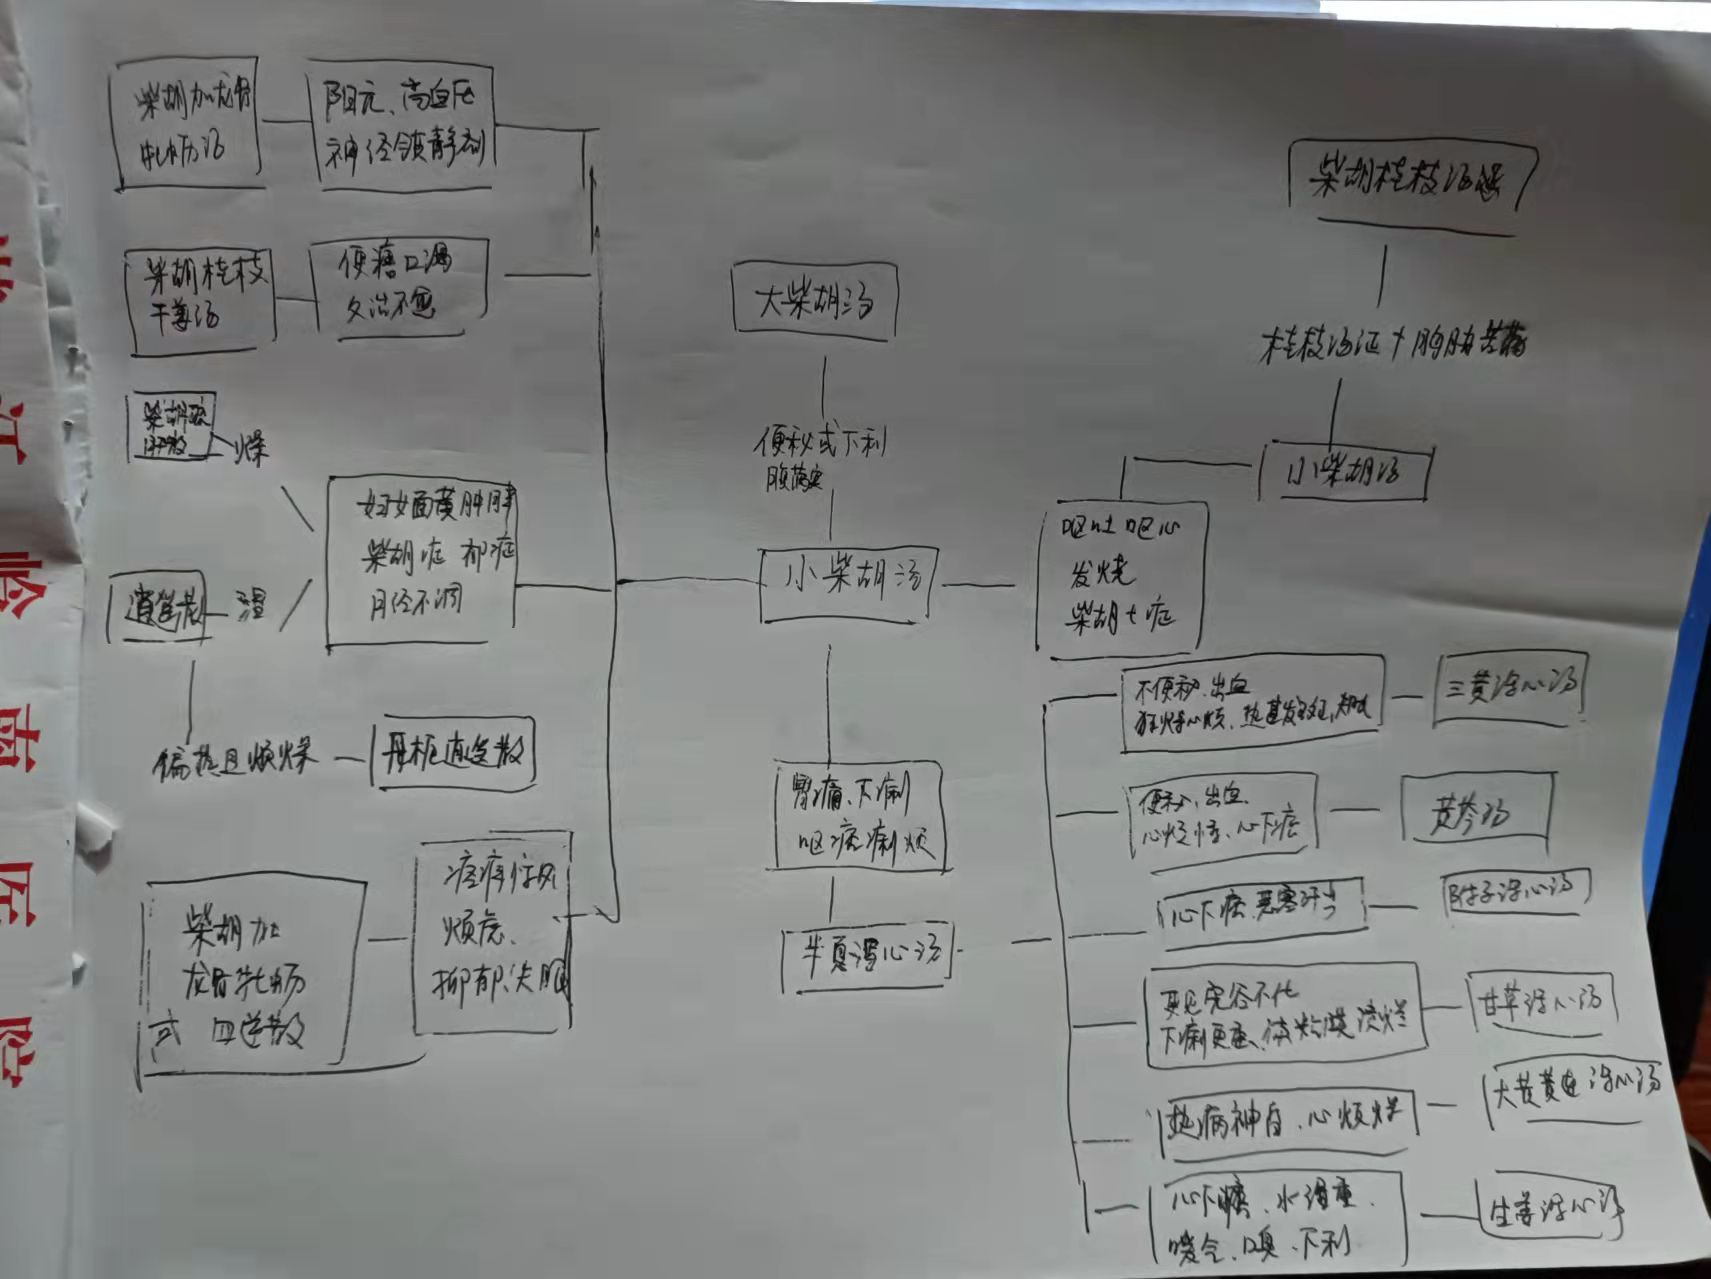 柴胡加龙骨
牡蛎汤
阳亢、高血压
神经镇静剂
柴胡桂枝
干姜汤
便溏口渴
久治不愈
柴胡
燥
妇女面黄肿胖
柴胡症 郁症
月经不调
逍遥散
湿
偏热且烦燥
丹栀逍遥散
柴胡加
龙骨牡蛎
或 四逆散
痉病惊风
烦
抑郁、失眠
大柴胡汤
便秘或下利
腹满实
小柴胡汤
胃痛、下痢
呕痞痢烦
半夏泻心汤
柴胡桂枝汤
桂枝汤证+胸胁苦
小柴胡汤
呕吐呕心
发烧
柴胡七症
不便秘、出血
狂燥心烦、热甚发斑
三黄泻心汤
便秘、出血、
心烦悸、心下痞
黄芩汤
心下痞、恶寒汗出
附子泻心汤
更见完谷不化
下痢更重、体粘膜溃烂
甘草泻心汤
热病神昏、心烦燥
大黄黄连泻心汤
心下痞、水湿重、
嗳气、口臭、下利
生姜泻心汤
江
岭
南
医
院